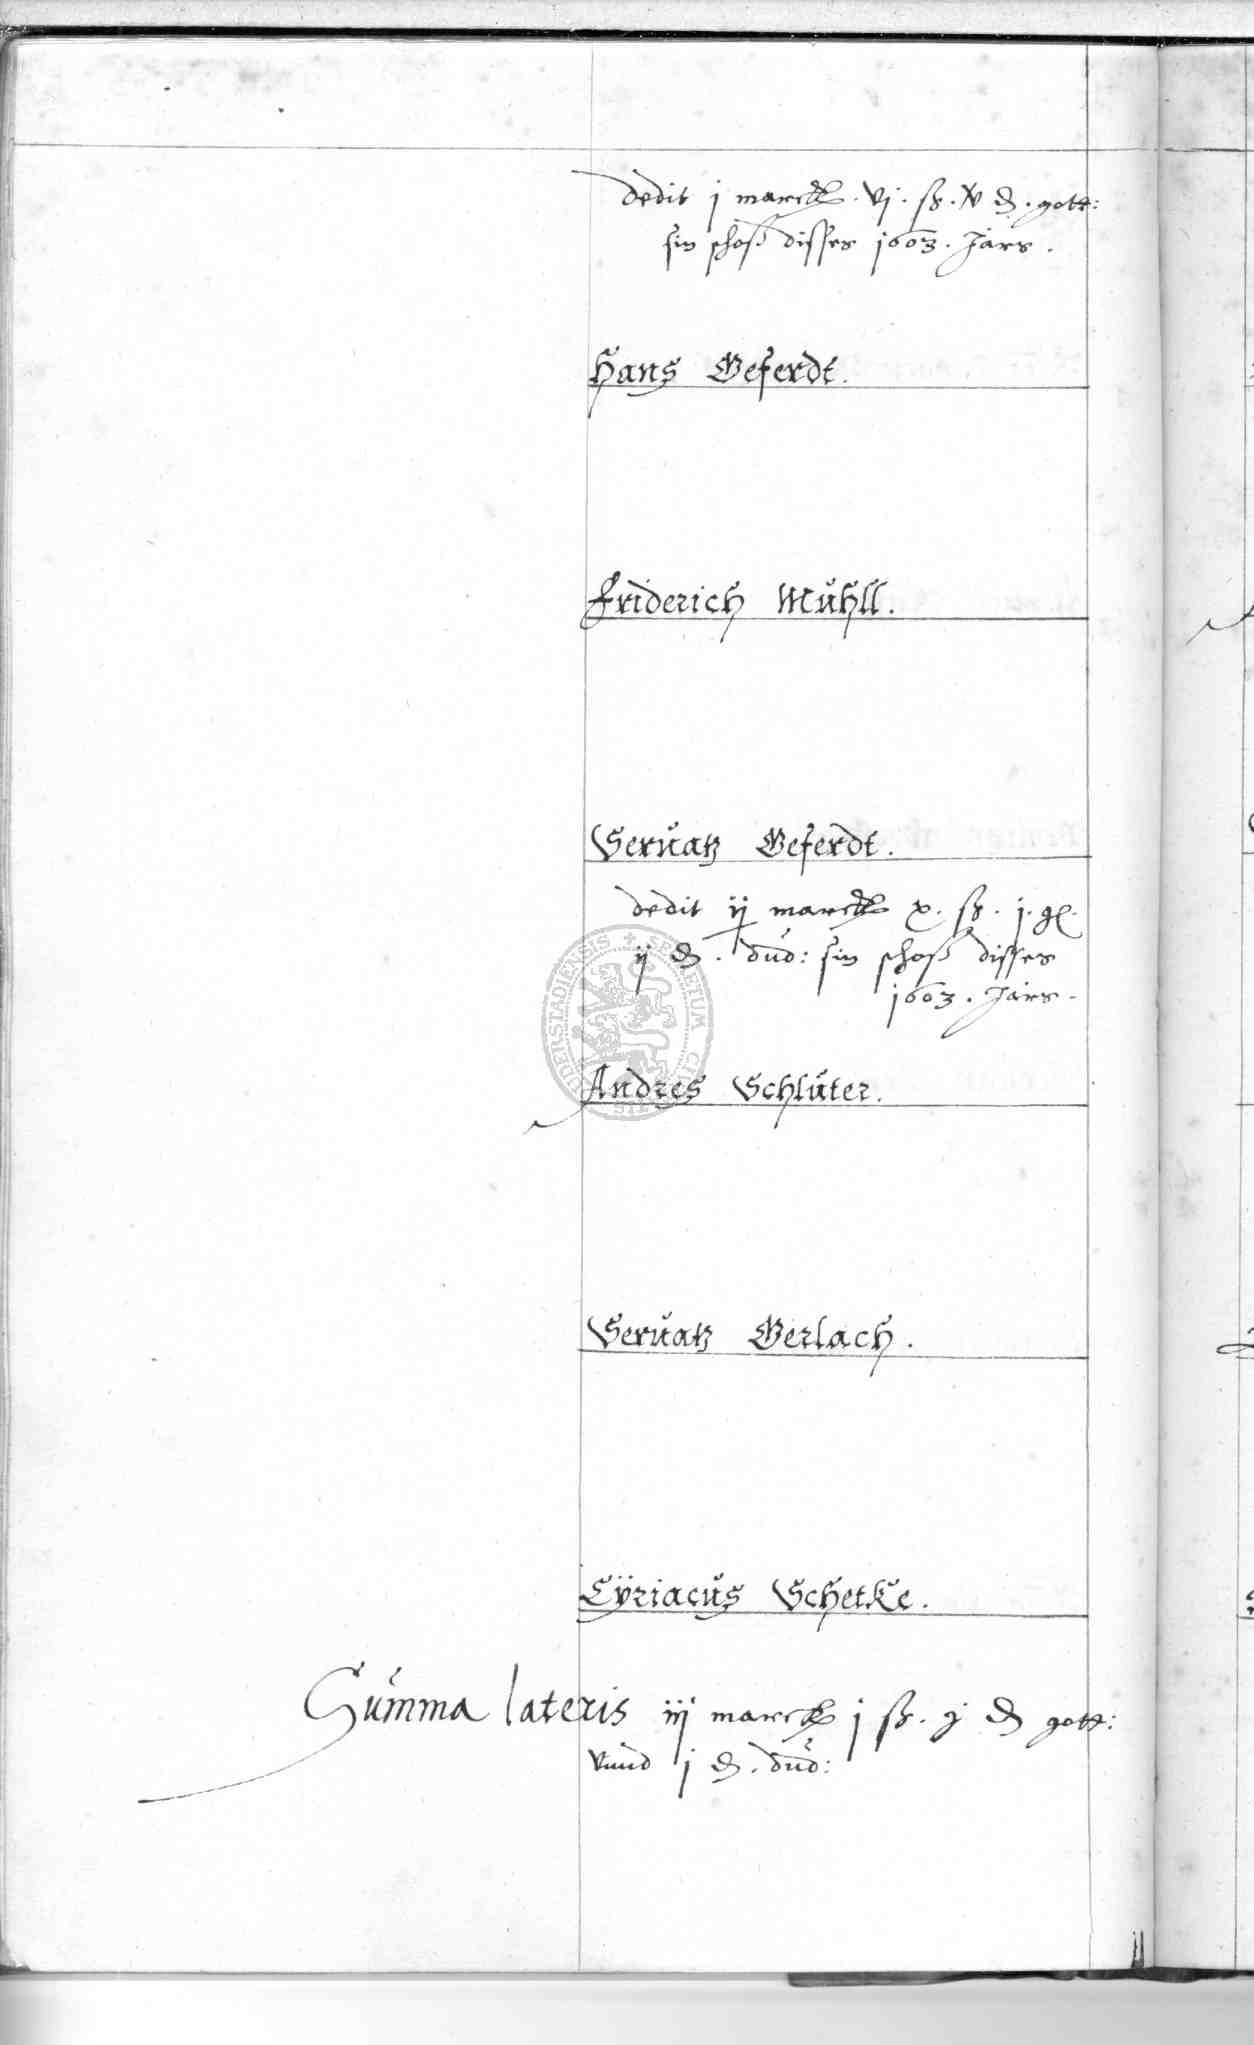 dedit j marck . vj . ß . v ₰ . gott:
sin schoß disses 1603 . Jars .
Hans Geferdt .
Friderich Mühll .
Seruatz Geferdt .
dedit ij marck x . ß . j . gl.
ij ₰ . dud : sin schoß disses
1603 . Jars .
Andres Schluter .
Seruatz Gerlach .
Cÿriacus Schetke .
Summa lateris iij marck j ß . ₰ gott :
vnnd j ₰ . dud :
SECRETUM